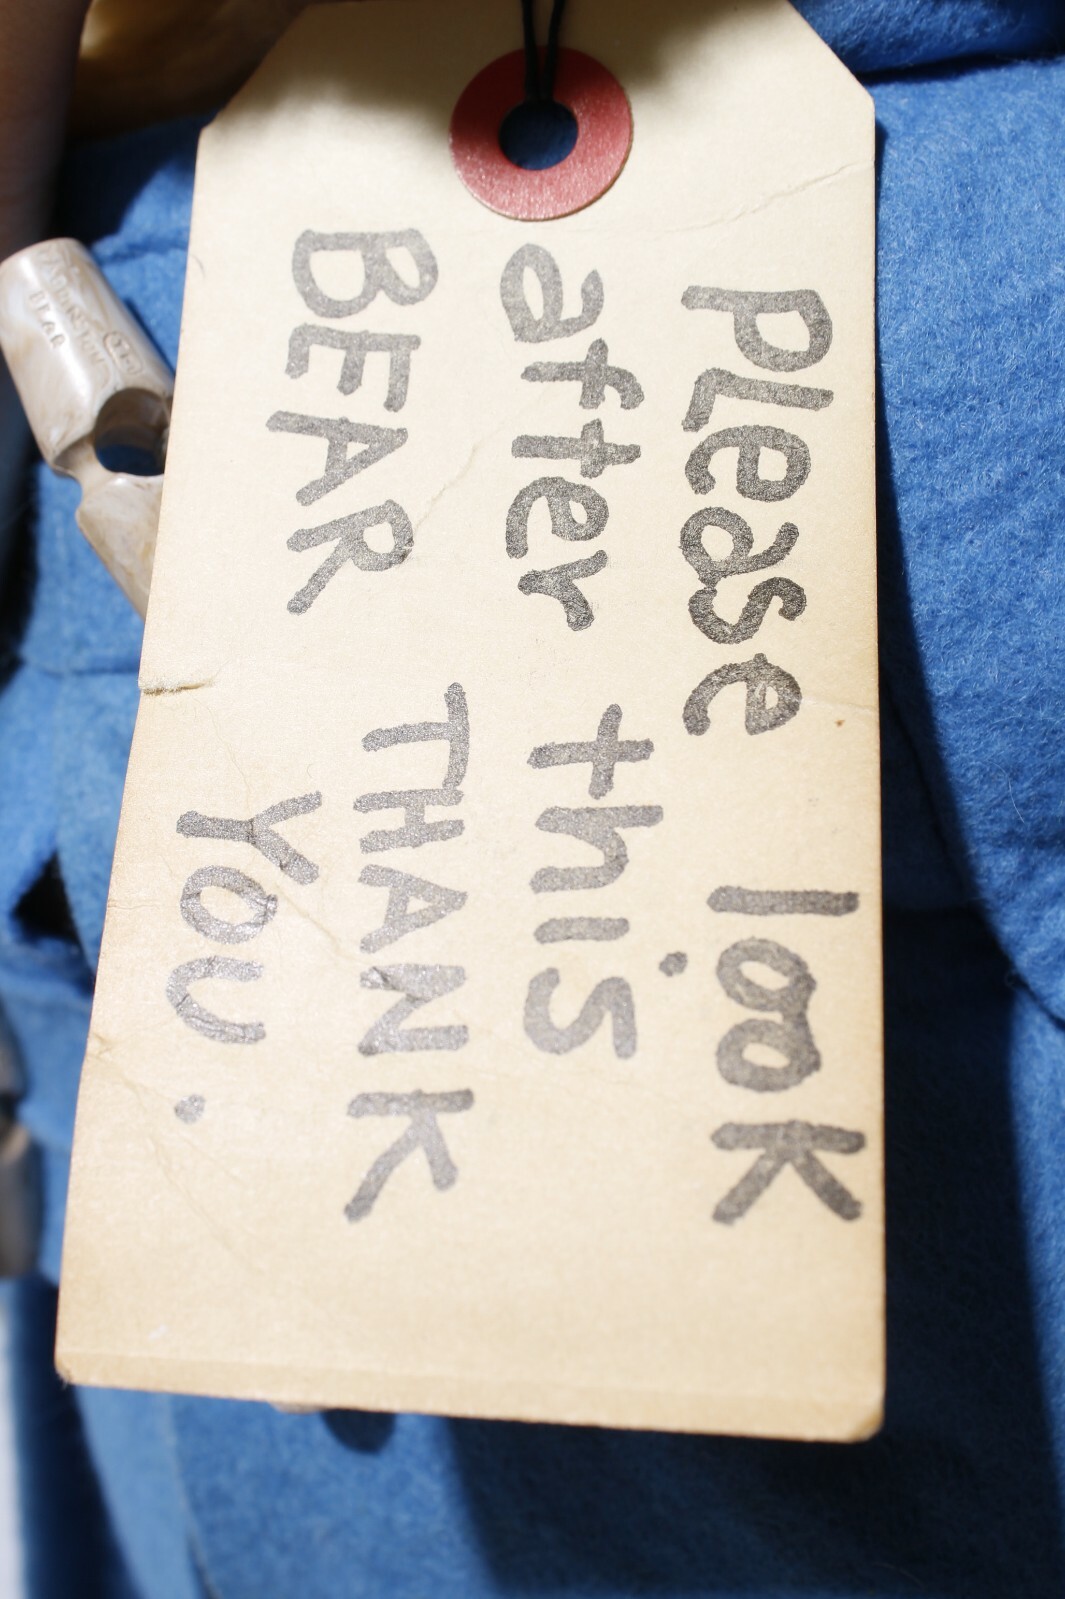 Please look
after this
BEAR THANK
YOU.
PADDINGTON
BEAR